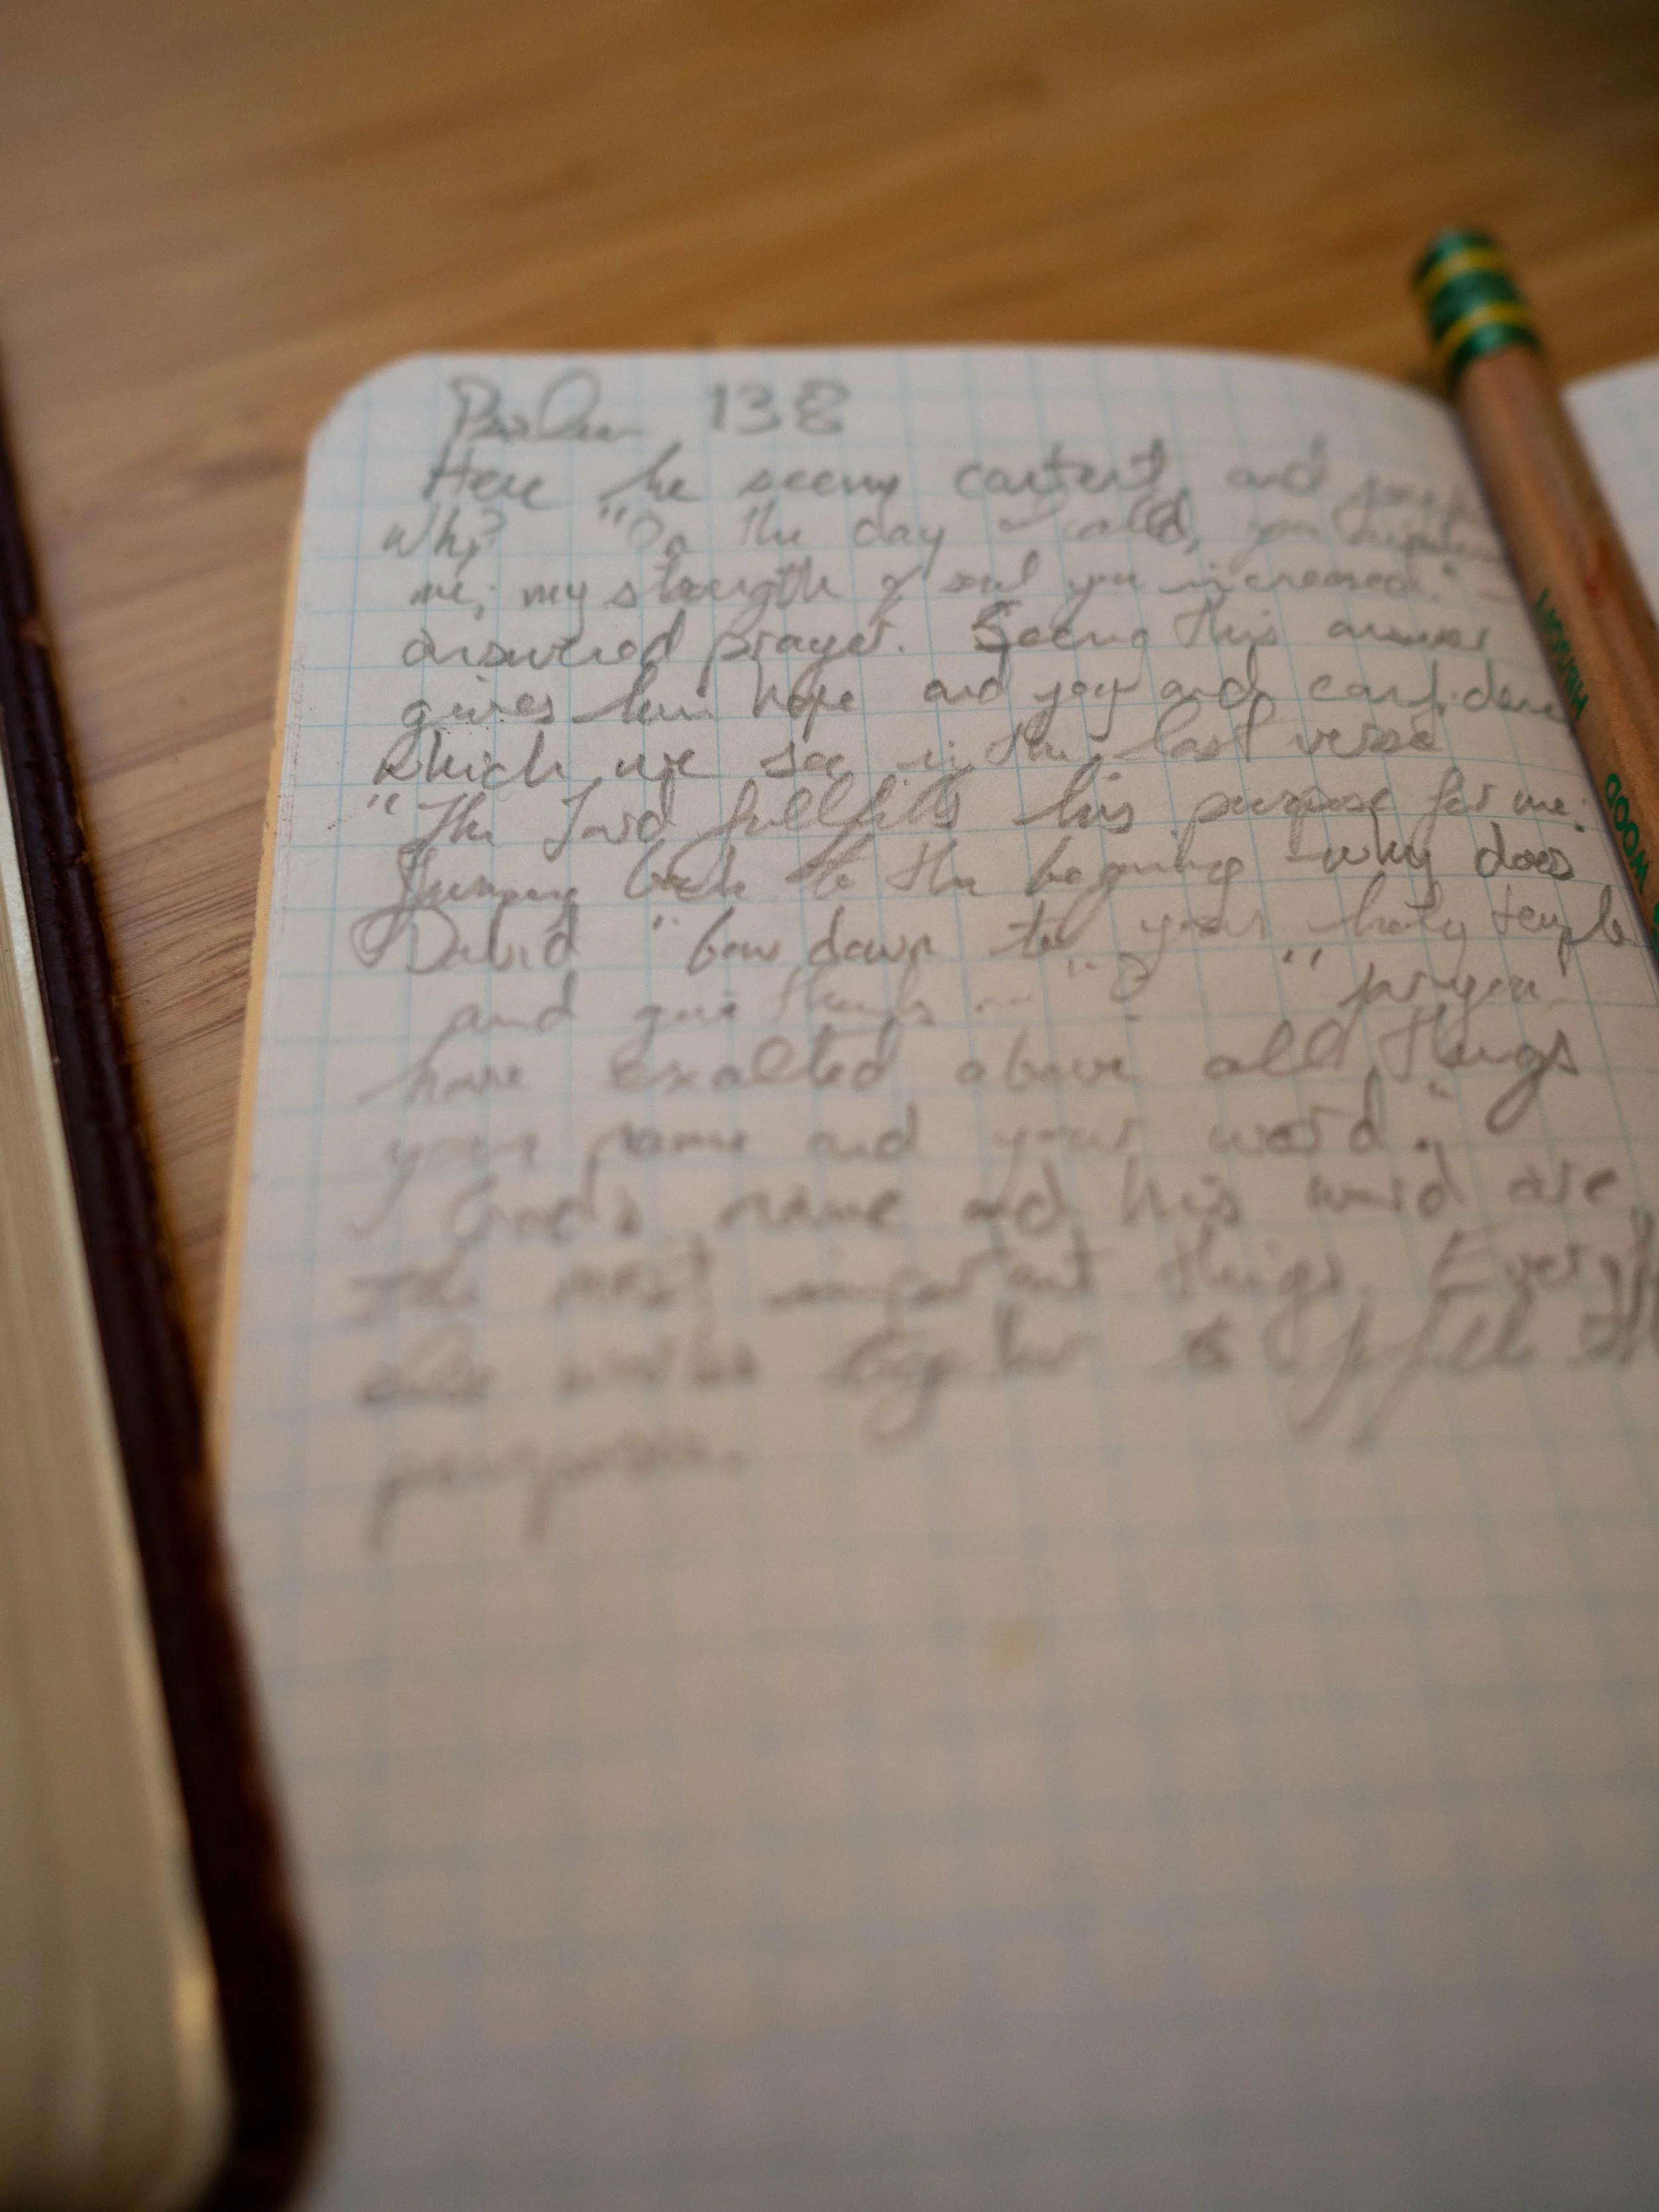 Psalm 138
Here he seems content, and
Why? "On the day I called, you
me; my strength of soul you increased." –
answered prayer. Seeing this answer
gives him hope and joy and confidence
which we see in the last verse
"The Lord fullfills his purpose for me."
Jumping back to the beginning – why does
David "bow down to your holy temple
and give thanks ..."? "for you
have exalted above all things
your name and your word."
God's name and his word are
the most important things.
else works together to
purposes.
WOOD